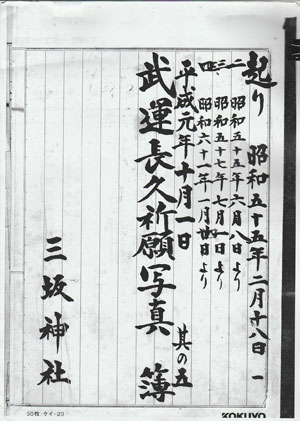 起り 昭和五十五年二月十八日 一
二 昭和五十五年六月八日より
三 昭和五十七年七月四日より
四 昭和六十一年一月廿四日より
平成元年十月一日 其の五
武運長久祈願写真簿
三坂神社
50枚 ケイ-20
KOKUYO